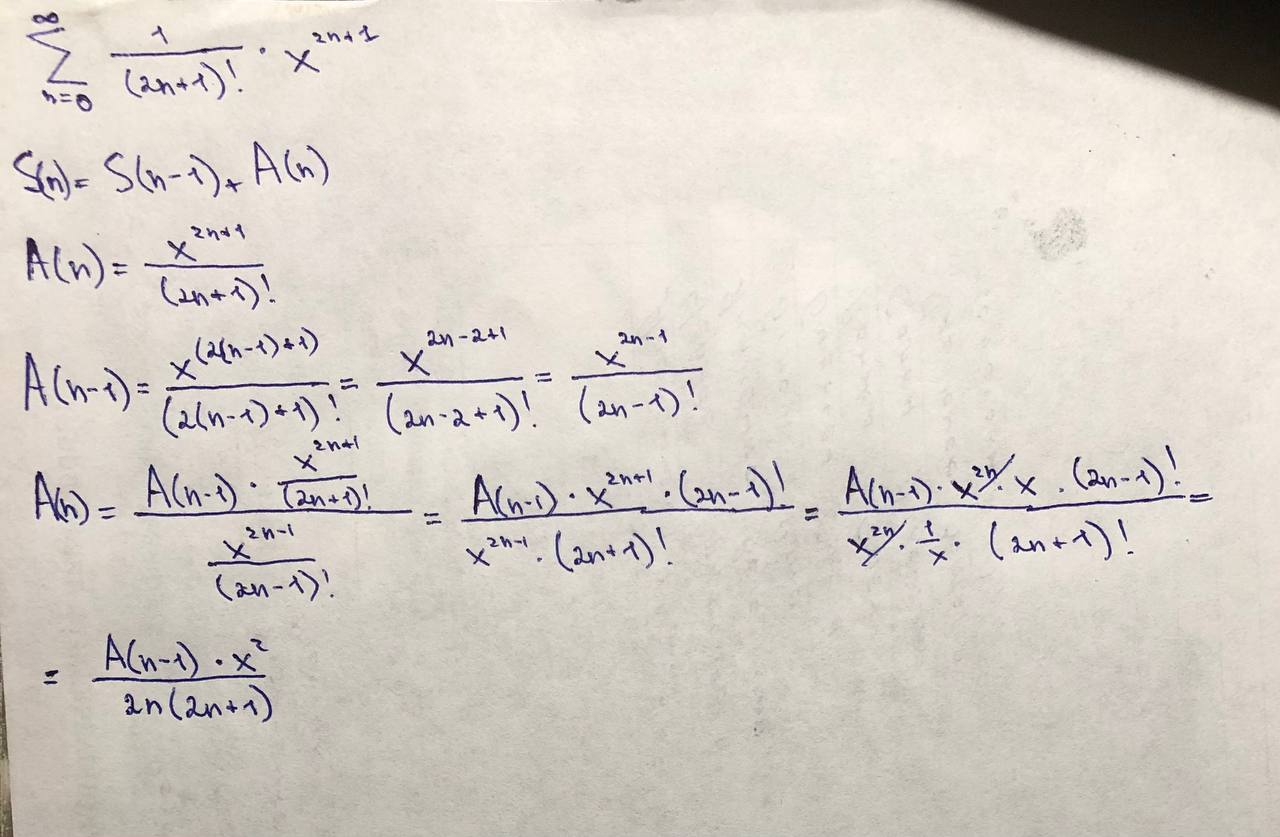 ∞ ∑ n=0 1/(2n+1)! · x^(2n+1)
S(n) = S(n-1) + A(n)
A(n) = x^(2n+1)/(2n+1)!
A(n-1) = x^(2(n-1)+1)/(2(n-1)+1)! = x^(2n-2+1)/(2n-2+1)! = x^(2n-1)/(2n-1)!
A(n) = (A(n-1) · x^(2n+1)/(2n+1)!)/(x^(2n-1)/(2n-1)!) = (A(n-1) · x^(2n+1) · (2n-1)!)/(x^(2n-1) · (2n+1)!) = (A(n-1) · x^(2n) · x · (2n-1)!)/(x^(2n) · 1/x · (2n+1)!) =
= (A(n-1) · x^2)/(2n(2n+1))